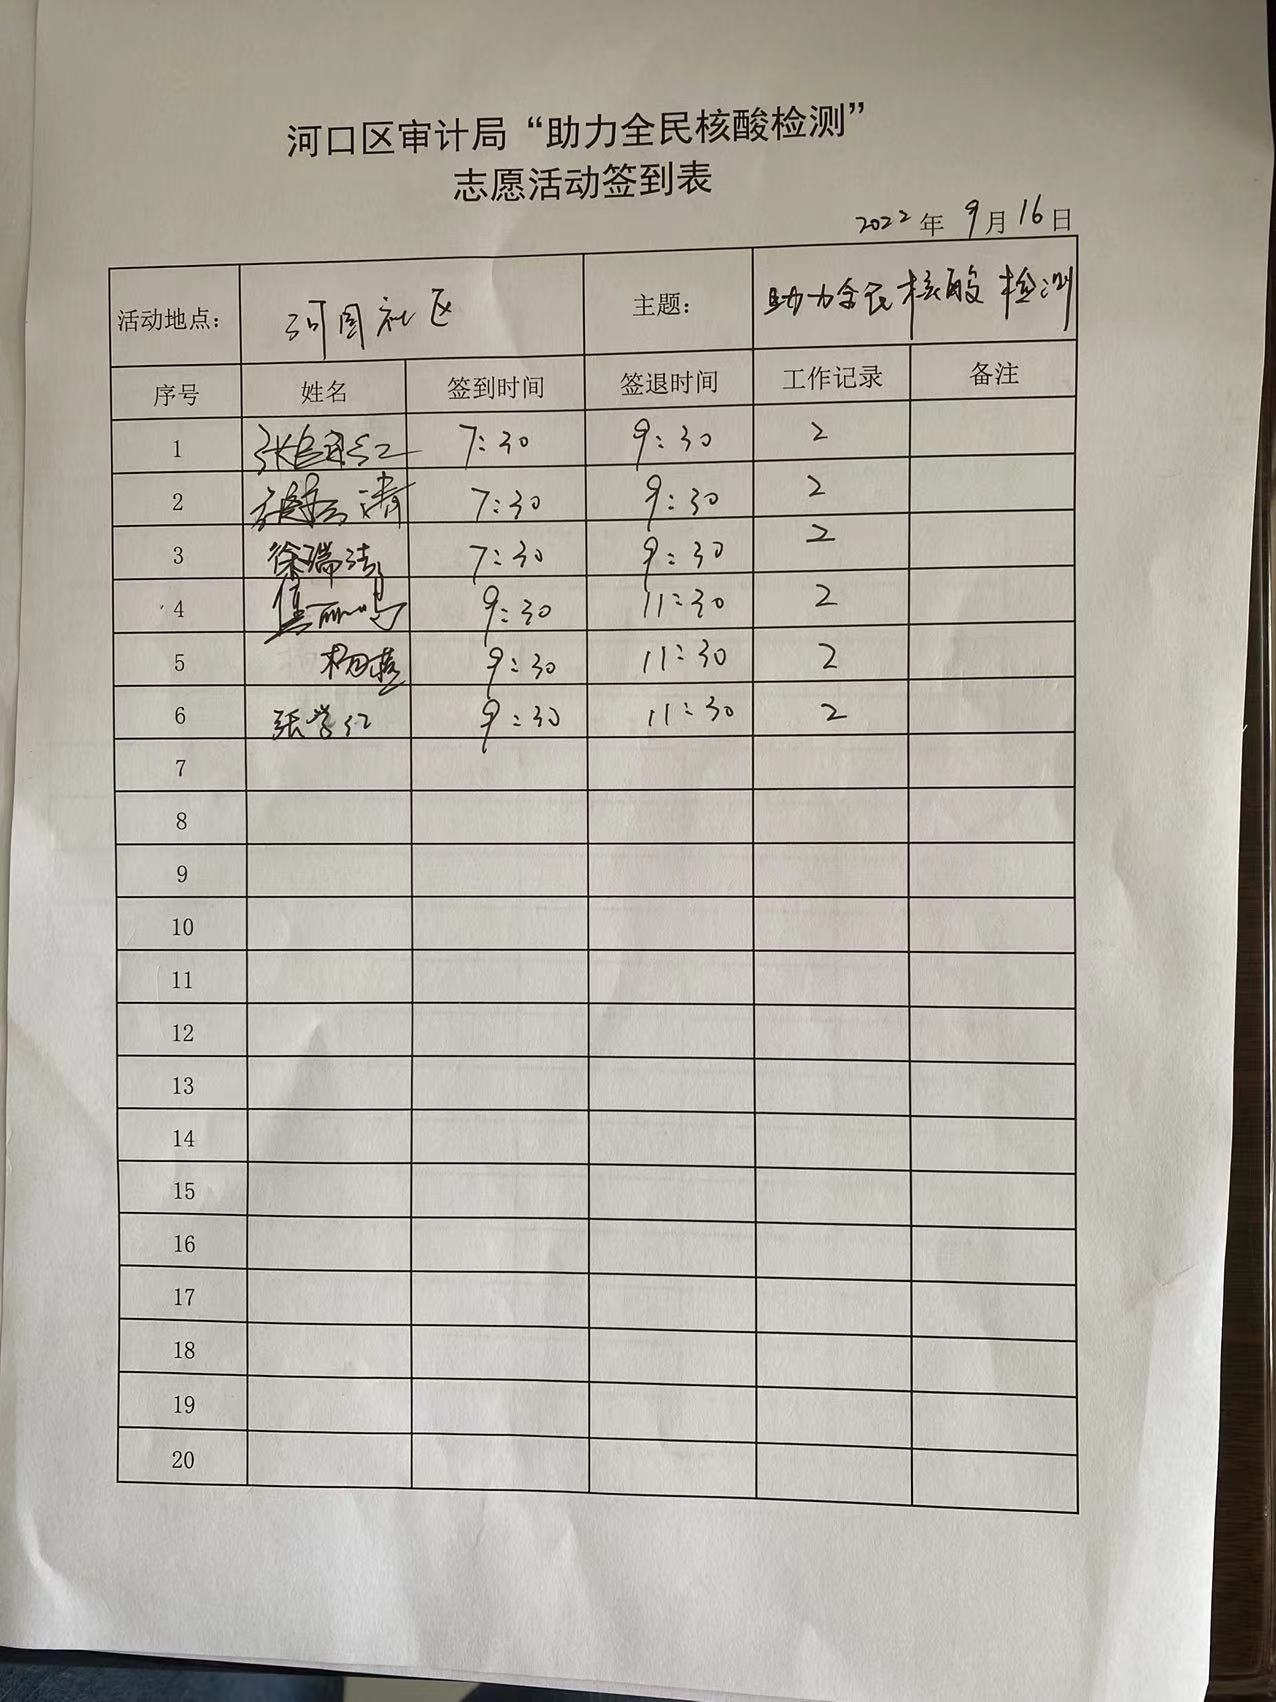 河口区审计局“助力全民核酸检测”
志愿活动签到表
2022年 9月16日
活动地点： 河国社区 主题： 助力全民核酸检测
序号 姓名 签到时间 签退时间 工作记录 备注
1 7:30 9:30 2
2 7:30 9:30 2
3 徐瑞洁 7:30 9:30 2
4 焦丽鸣 9:30 11:30 2
5 杨燕 9:30 11:30 2
6 张学红 9:30 11:30 2
7
8
9
10
11
12
13
14
15
16
17
18
19
20